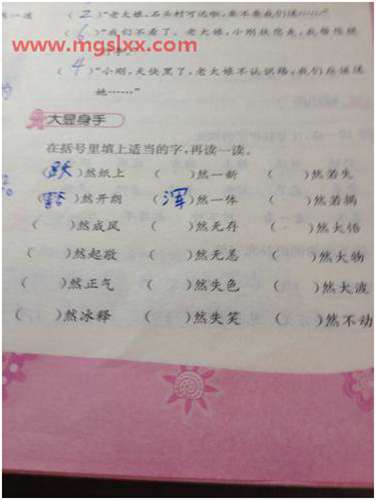 www.mgslxx.com
(2)“老大娘，石头村可远啦，要不要我们送……”
(6)“我们不看了。老大娘，小刚扶您走，我帮您提
(4)“小刚，天快黑了，老大娘不认识路，我们应该送
她……”
大显身手
在括号里填上适当的字，再读一读。
(跃)然纸上 ( )然一新 ( )然若失
(豁)然开朗 (浑)然一体 ( )然若揭
( )然成风 ( )然无存 ( )然大悟
( )然起敬 ( )然无恙 ( )然大物
( )然正气 ( )然失色 ( )然大波
( )然冰释 ( )然失笑 ( )然不动